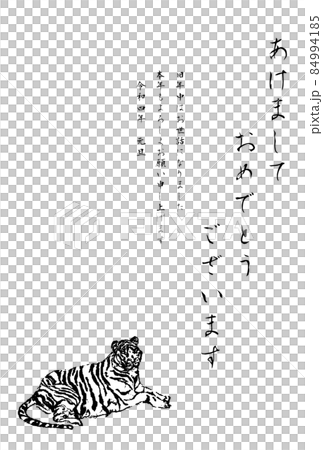 あけまして
おめでとう
ございます
旧年中はお世話になりました
本年もよろしくお願い申し上げます
令和四年 元旦
PIXTA
pixta.jp - 84994185